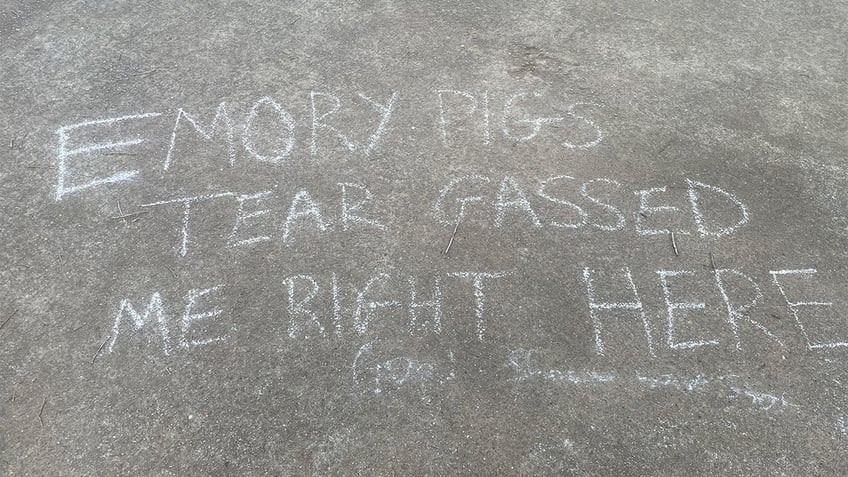 EMORY PIGS
TEAR GASSED
ME RIGHT HERE